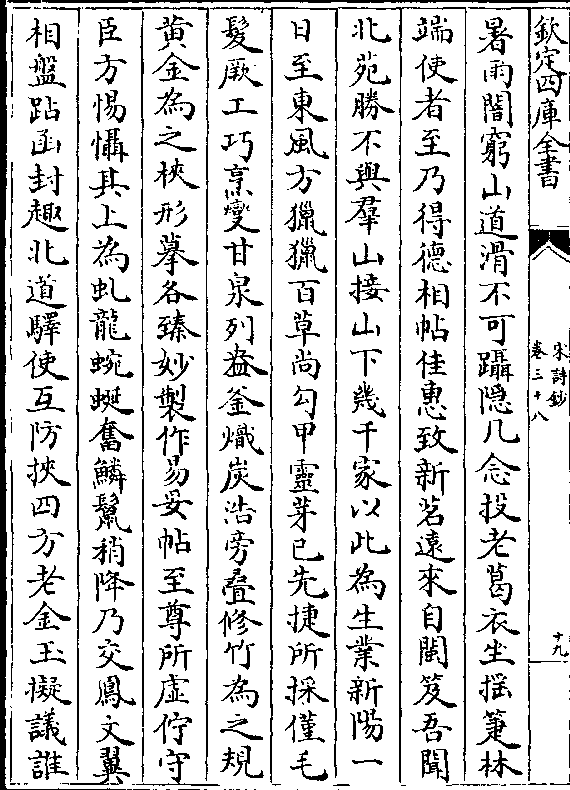 欽定四庫全書
宋詩鈔
卷三十八
十九
暑雨闇窮山道滑不可躡隠几念投老葛衣坐揺箑林
端使者至乃得德相帖佳惠致新茗遠來自閩笈吾聞
北苑勝不與羣山接山下幾千家以此為生業新陽一
日至東風方獵獵百草尚勾甲靈芽已先捷所採僅毛
髮厥工巧烹爕甘泉列盎釜熾炭浩旁疊修竹為之規
黄金為之梜形摹各臻妙製作易妥帖至尊所虚佇守
臣方惕懾其上為虬龍蜿蜒奮鱗鬛稍降乃交鳳文翼
相盤跕函封趣北道驛使互防挾四方老金玉擬議誰